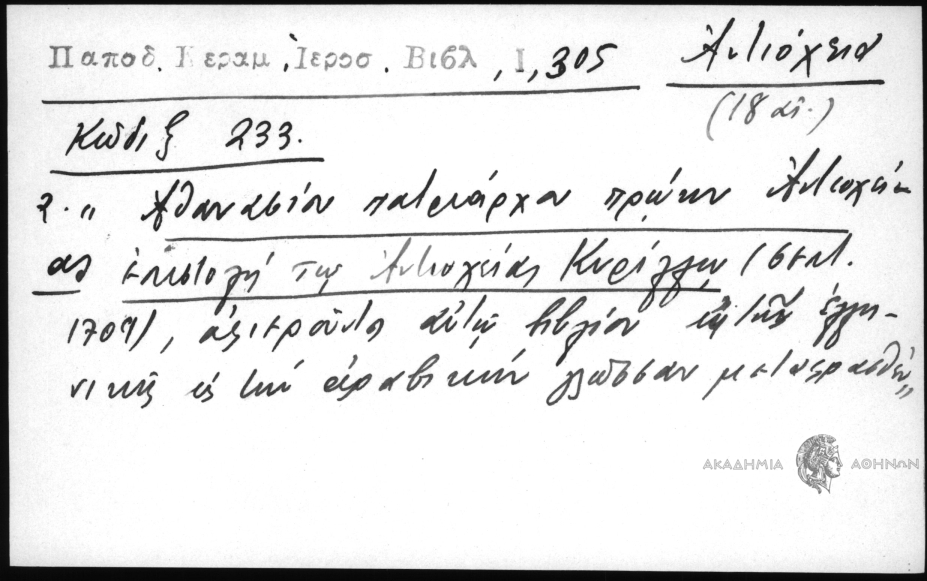 Παποδ. Κεραμ, Ἱεροσ. Βιβλ, Ι, 305 Ἀντιόχεια
(18 αἰ.)
Κώδιξ 233.
2. „ Ἀθανασίου πατριάρχου πρώην Ἀντιοχεί-
ας ἐπιστολὴ τῷ Ἀντιοχείας Κυρίλλῳ (σεπτ.
1704),  αὐτῷ βιβλίον ἐκ τῆς ἑλλη-
νικῆς εἰς τὴν ἀραβικὴν γλῶσσαν μεταφρασθέν„
ΑΚΑΔΗΜΙΑ ΑΘΗΝΩΝ